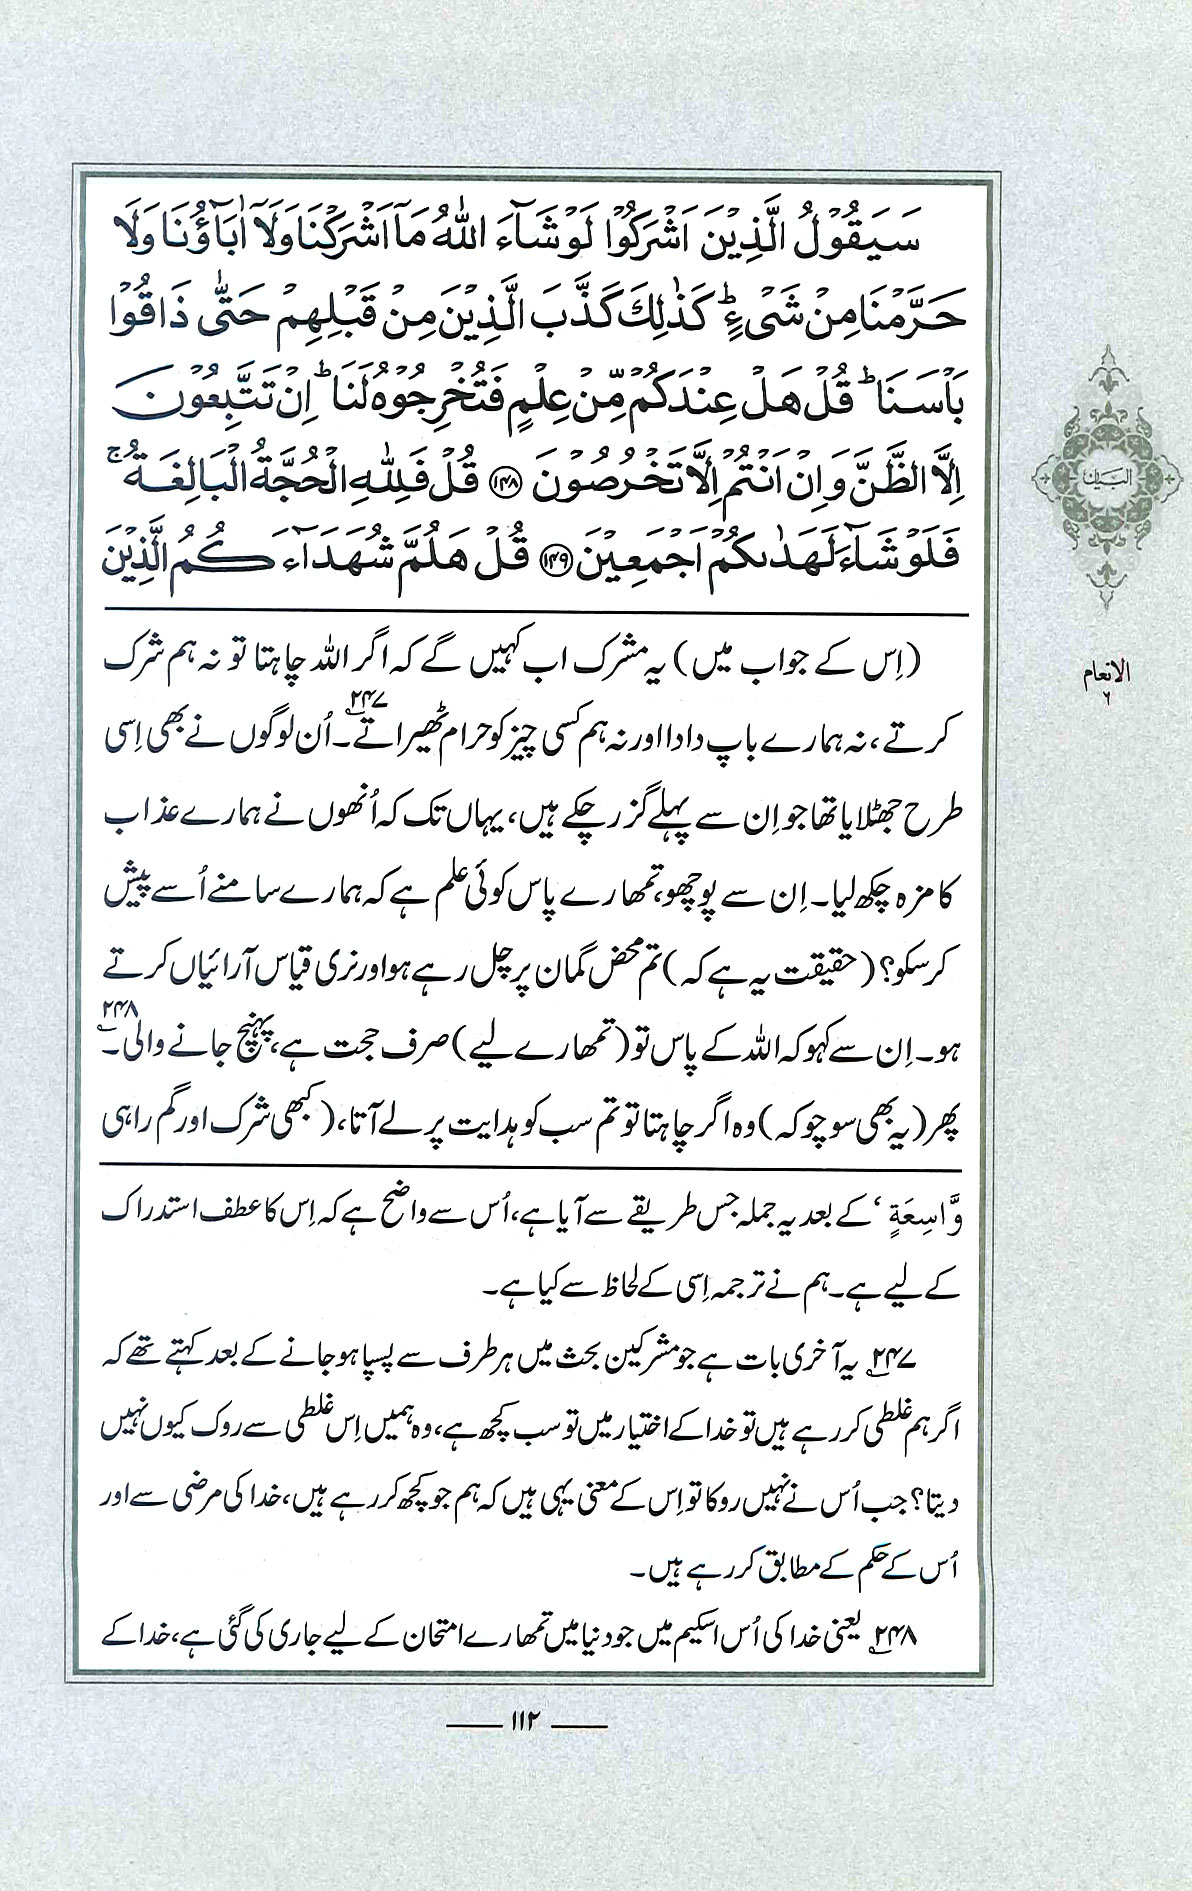 سَيَقُوْلُ الَّذِيْنَ اَشْرَكُوْا لَوْ شَآءَ اللّٰهُ مَآ اَشْرَكْنَا وَلَآ اٰبَآؤُنَا وَلَا
حَرَّمْنَا مِنْ شَیْءٍ ؕ كَذٰلِكَ كَذَّبَ الَّذِيْنَ مِنْ قَبْلِهِمْ حَتّٰى ذَاقُوْا
بَاْسَنَا ؕ قُلْ هَلْ عِنْدَكُمْ مِّنْ عِلْمٍ فَتُخْرِجُوْهُ لَنَا ؕ اِنْ تَتَّبِعُوْنَ
اِلَّا الظَّنَّ وَاِنْ اَنْتُمْ اِلَّا تَخْرُصُوْنَ ﴿۱۴۸﴾ قُلْ فَلِلّٰهِ الْحُجَّةُ الْبَالِغَةُ ۚ
فَلَوْ شَآءَ لَهَدٰىكُمْ اَجْمَعِيْنَ ﴿۱۴۹﴾ قُلْ هَلُمَّ شُهَدَآءَكُمُ الَّذِيْنَ
(اِس کے جواب میں) یہ مشرک اب کہیں گے کہ اگر اللہ چاہتا تو نہ ہم شرک
کرتے، نہ ہمارے باپ دادا اور نہ ہم کسی چیز کو حرام ٹھیراتے۔۲۴۷ اُن لوگوں نے بھی اِسی
طرح جھٹلایا تھا جو اِن سے پہلے گزر چکے ہیں، یہاں تک کہ اُنھوں نے ہمارے عذاب
کا مزہ چکھ لیا۔ اِن سے پوچھو، تمھارے پاس کوئی علم ہے کہ ہمارے سامنے اُسے پیش
کر سکو؟ (حقیقت یہ ہے کہ) تم محض گمان پر چل رہے ہو اور نری قیاس آرائیاں کرتے
ہو۔ اِن سے کہو کہ اللہ کے پاس تو (تمھارے لیے) صرف حجت ہے، پہنچ جانے والی۔۲۴۸
پھر (یہ بھی سوچو کہ) وہ اگر چاہتا تو تم سب کو ہدایت پر لے آتا، (کبھی شرک اور گم راہی
وَّاسِعَةٍ‘ کے بعد یہ جملہ جس طریقے سے آیا ہے، اُس سے واضح ہے کہ اِس کا عطف استدراک
کے لیے ہے۔ ہم نے ترجمہ اِسی کے لحاظ سے کیا ہے۔
۲۴۷ یہ آخری بات ہے جو مشرکین بحث میں ہر طرف سے پسپا ہو جانے کے بعد کہتے تھے کہ
اگر ہم غلطی کر رہے ہیں تو خدا کے اختیار میں تو سب کچھ ہے، وہ ہمیں اِس غلطی سے روک کیوں نہیں
دیتا؟ جب اُس نے نہیں روکا تو اِس کے معنی یہی ہیں کہ ہم جو کچھ کر رہے ہیں، خدا کی مرضی سے اور
اُس کے حکم کے مطابق کر رہے ہیں۔
۲۴۸ یعنی خدا کی اُس اسکیم میں جو دنیا میں تمھارے امتحان کے لیے جاری کی گئی ہے، خدا کے
البیان
الانعام
۶
۱۱۲